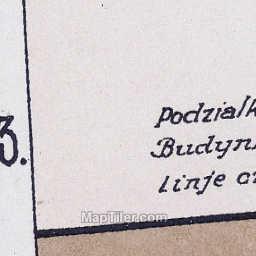 3.
Podziałk
Budyn
Linje
MapTiler.com